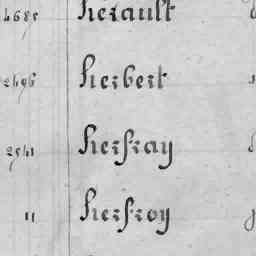 Herault
2496 Herbert
2541 Herfray
11 Herfroy